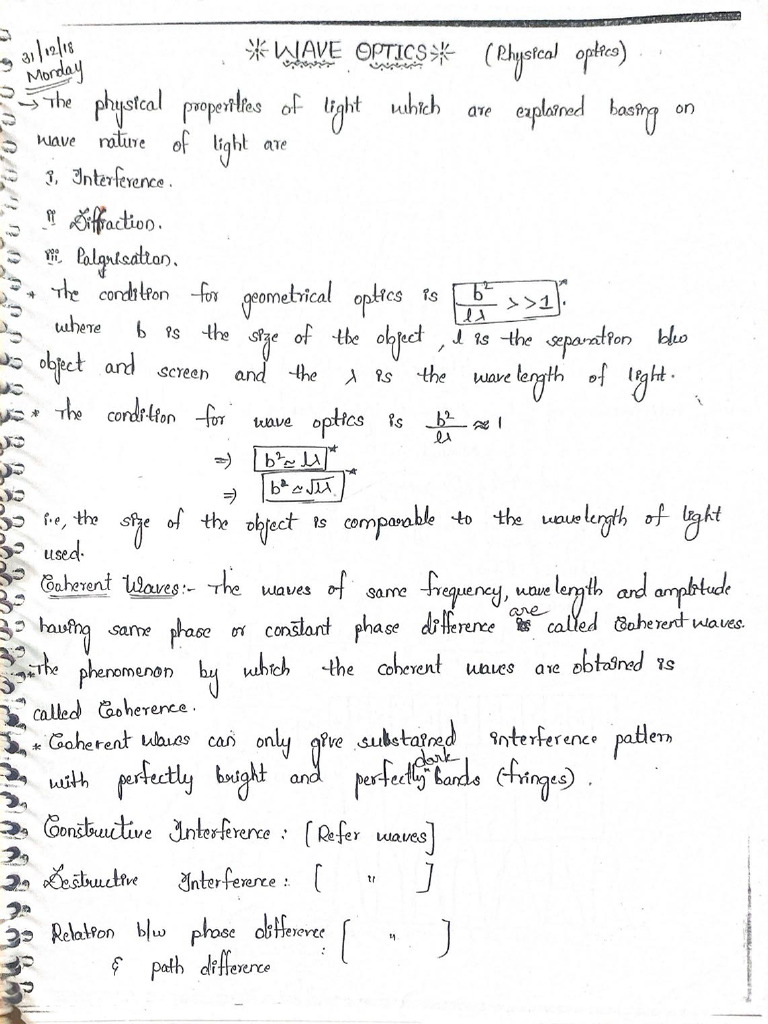 31/12/18
Monday
*WAVE OPTICS* (Physical optics)
→ The physical properties of light which are explained basing on
wave nature of light are
i, Interference.
ii Diffraction.
iii. Polarisation.
* The condition for geometrical optics is b²/lλ >>1*.
where b is the size of the object, l is the separation b/w
object and screen and the λ is the wavelength of light.
* The condition for wave optics is b²/lλ ≈ 1
⇒ b² ≃ lλ*
⇒ b² ≃ √lλ*
i.e, the size of the object is comparable to the wavelength of light
used.
Coherent Waves:- The waves of same frequency, wavelength and amplitude
having same phase or constant phase difference are called Coherent waves.
*The phenomenon by which the coherent waves are obtained is
called Coherence.
* Coherent waves can only give substained interference pattern
with perfectly bright and perfectly dark bands (fringes).
Constructive Interference : [Refer waves]
Destructive Interference : [ " ]
Relation b/w phase difference : [ " ]
& path difference